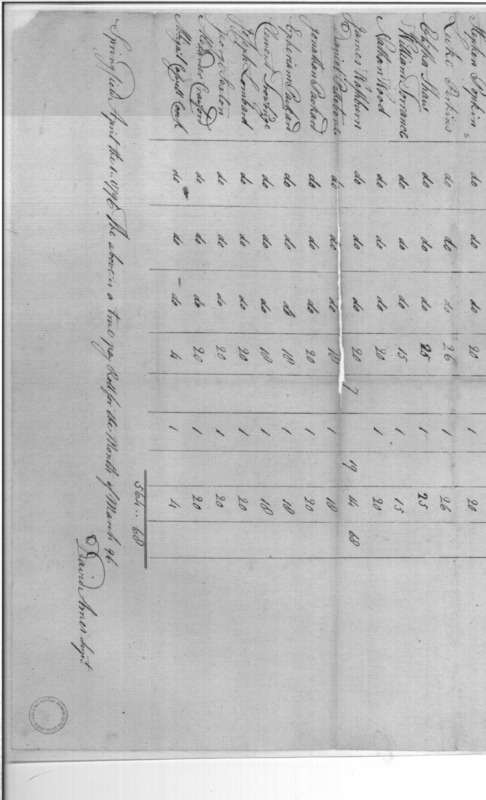 Stephen Perkins do do do 20 1 20
Luke Perkins do do do 26 1 26
Shaw do do do 25 1 25
William Torrance do do do 15 1 15
Nathan Wood do do do 20 1 20
James Washburn do do do 20 7 19 14 68
Daniel do do do 18 1 18
Jonathan Packard do do do 20 1 20
Ephriam Packard do do do 18 1 18
Clement do do do 18 1 18
Joseph Lombard do do do 20 1 20
George Sexton do do do 20 1 20
Crawford do do do 20 1 20
Cook do do do 4 1 4
564.. 68
Springfield April the 1. 1796 The above is a true pay Roll for the Month of March 96
David Ames Supt